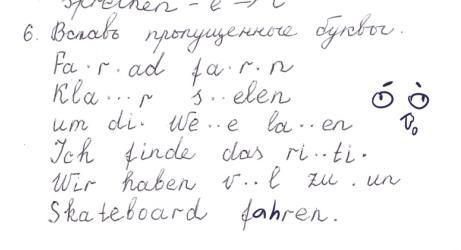 sprechen - e → i
6. Вставь пропущенные буквы.
Fa.r.ad fa.r.n
Kla...r s..elen
um di. We..e la..en
Ich finde das ri..ti.
Wir haben v..l zu .un
Skateboard fahren.